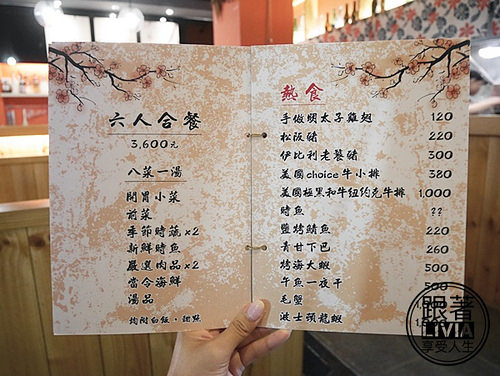 六人合餐
3,600元
八菜一湯
開胃小菜
前菜
季節時蔬x2
新鮮時魚
嚴選肉品x2
當令海鮮
湯品
均附白飯，甜點
熱食
手做明太子雞翅 120
松阪豬 220
伊比利老饕豬 300
美國choice牛小排 380
美國極黑和牛紐約克牛排 1,000
時魚 ??
鹽烤鯖魚 220
青甘下巴 260
烤海大蝦 500
午魚一夜干 500
毛蟹
波士頓龍蝦
跟著
LIVIA
享受人生